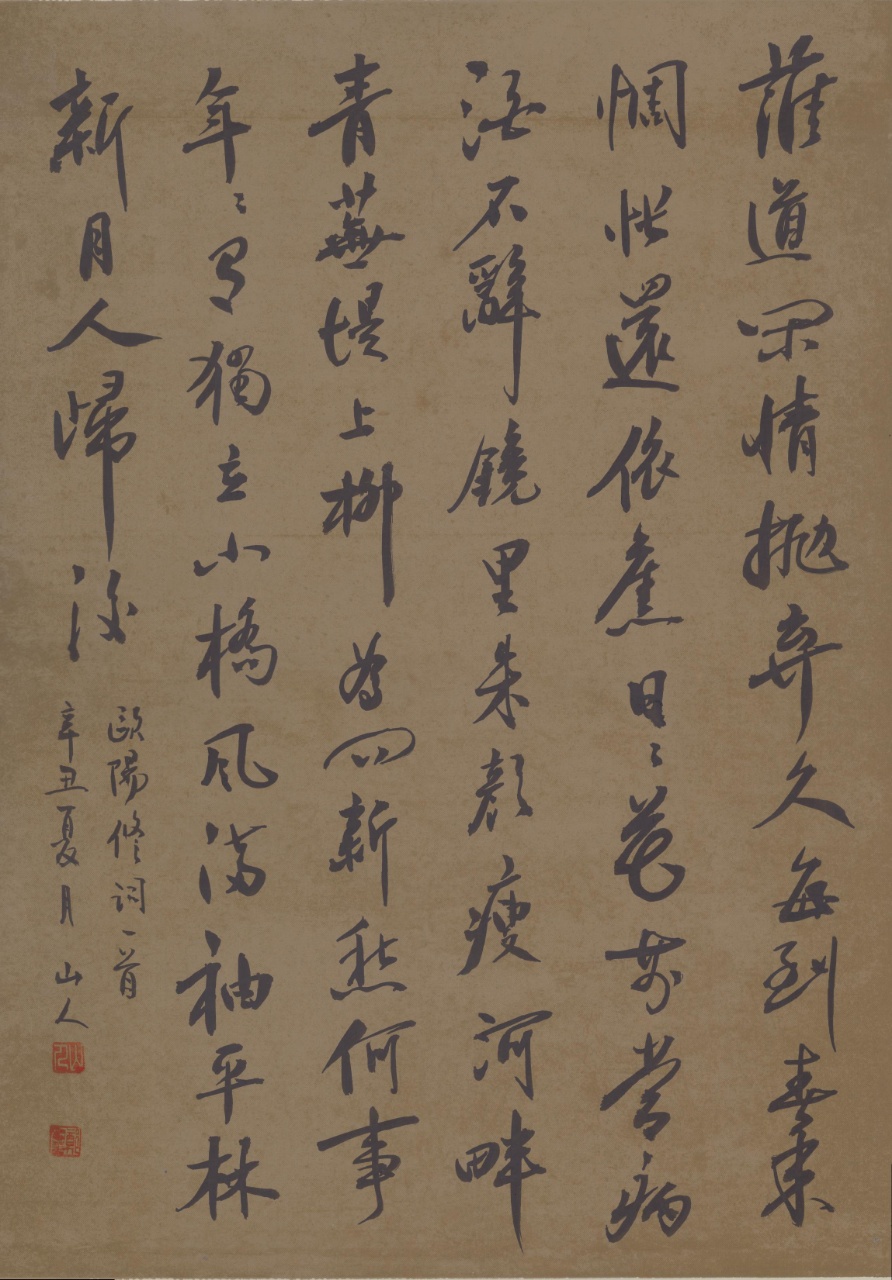 誰道閑情拋弃久每到春來
惆悵還依舊日〻花前常病
酒不辭鏡里朱顏瘦河畔
青蕪堤上柳為問新愁何事
年〻有獨立小橋風滿袖平林
新月人歸後
歐陽修詞一首
辛丑夏月 山人